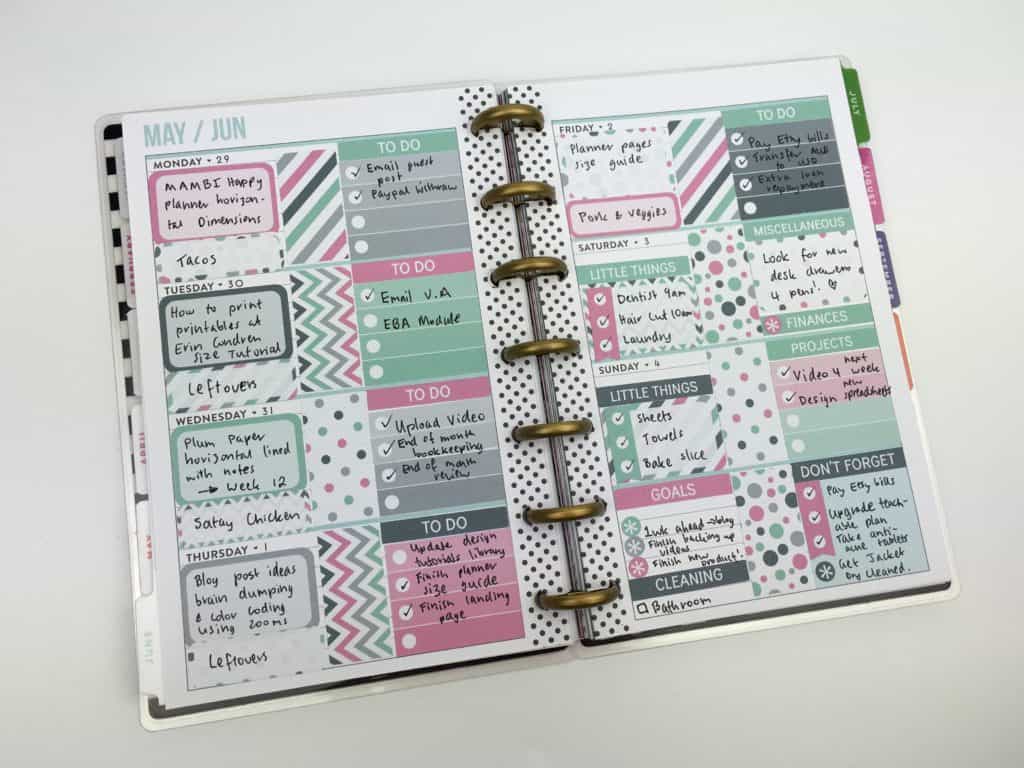 MAY / JUN
MONDAY • 29
MAMBI Happy
planner horizon-
tal Dimensions
Tacos
TO DO
Email guest
post
Paypal withdraw
TUESDAY • 30
How to print
printables at
Erin Condren
size Tutorial
Leftovers
TO DO
Email V.A
EBA Module
WEDNESDAY • 31
Plum Paper
horizontal lined
with notes
→ Week 12
Satay Chicken
TO DO
Upload Video
End of month
bookkeeping
End of month
review
THURSDAY • 1
Blog post ideas
brain dumping
& color coding
using 200ms
Leftovers
TO DO
Update design
tutorials library
Finish planner
size guide
Finish landing
page
FRIDAY • 2
Planner pages
size guide
Pork & veggies
TO DO
Pay Etsy bills
Transfer
to
Extra loan
repayment
SATURDAY • 3
LITTLE THINGS
Dentist 9am
Hair Cut 10am
Laundry
MISCELLANEOUS
Look for new
desk drawers
& pens!
FINANCES
SUNDAY • 4
LITTLE THINGS
Sheets
Towels
Bake slice
PROJECTS
Video 4 next
week
Design new
spreadsheets
GOALS
Ink ahead → blog
Finish backing up
videos
Finish new product!
CLEANING
Bathroom
DON'T FORGET
Pay Etsy bills
Upgrade teach-
able plan
Take anti-
acne tablets
Get Jacket
Dry Cleaned.
JULY
AUGUST
SEPTEMBER
JUNE